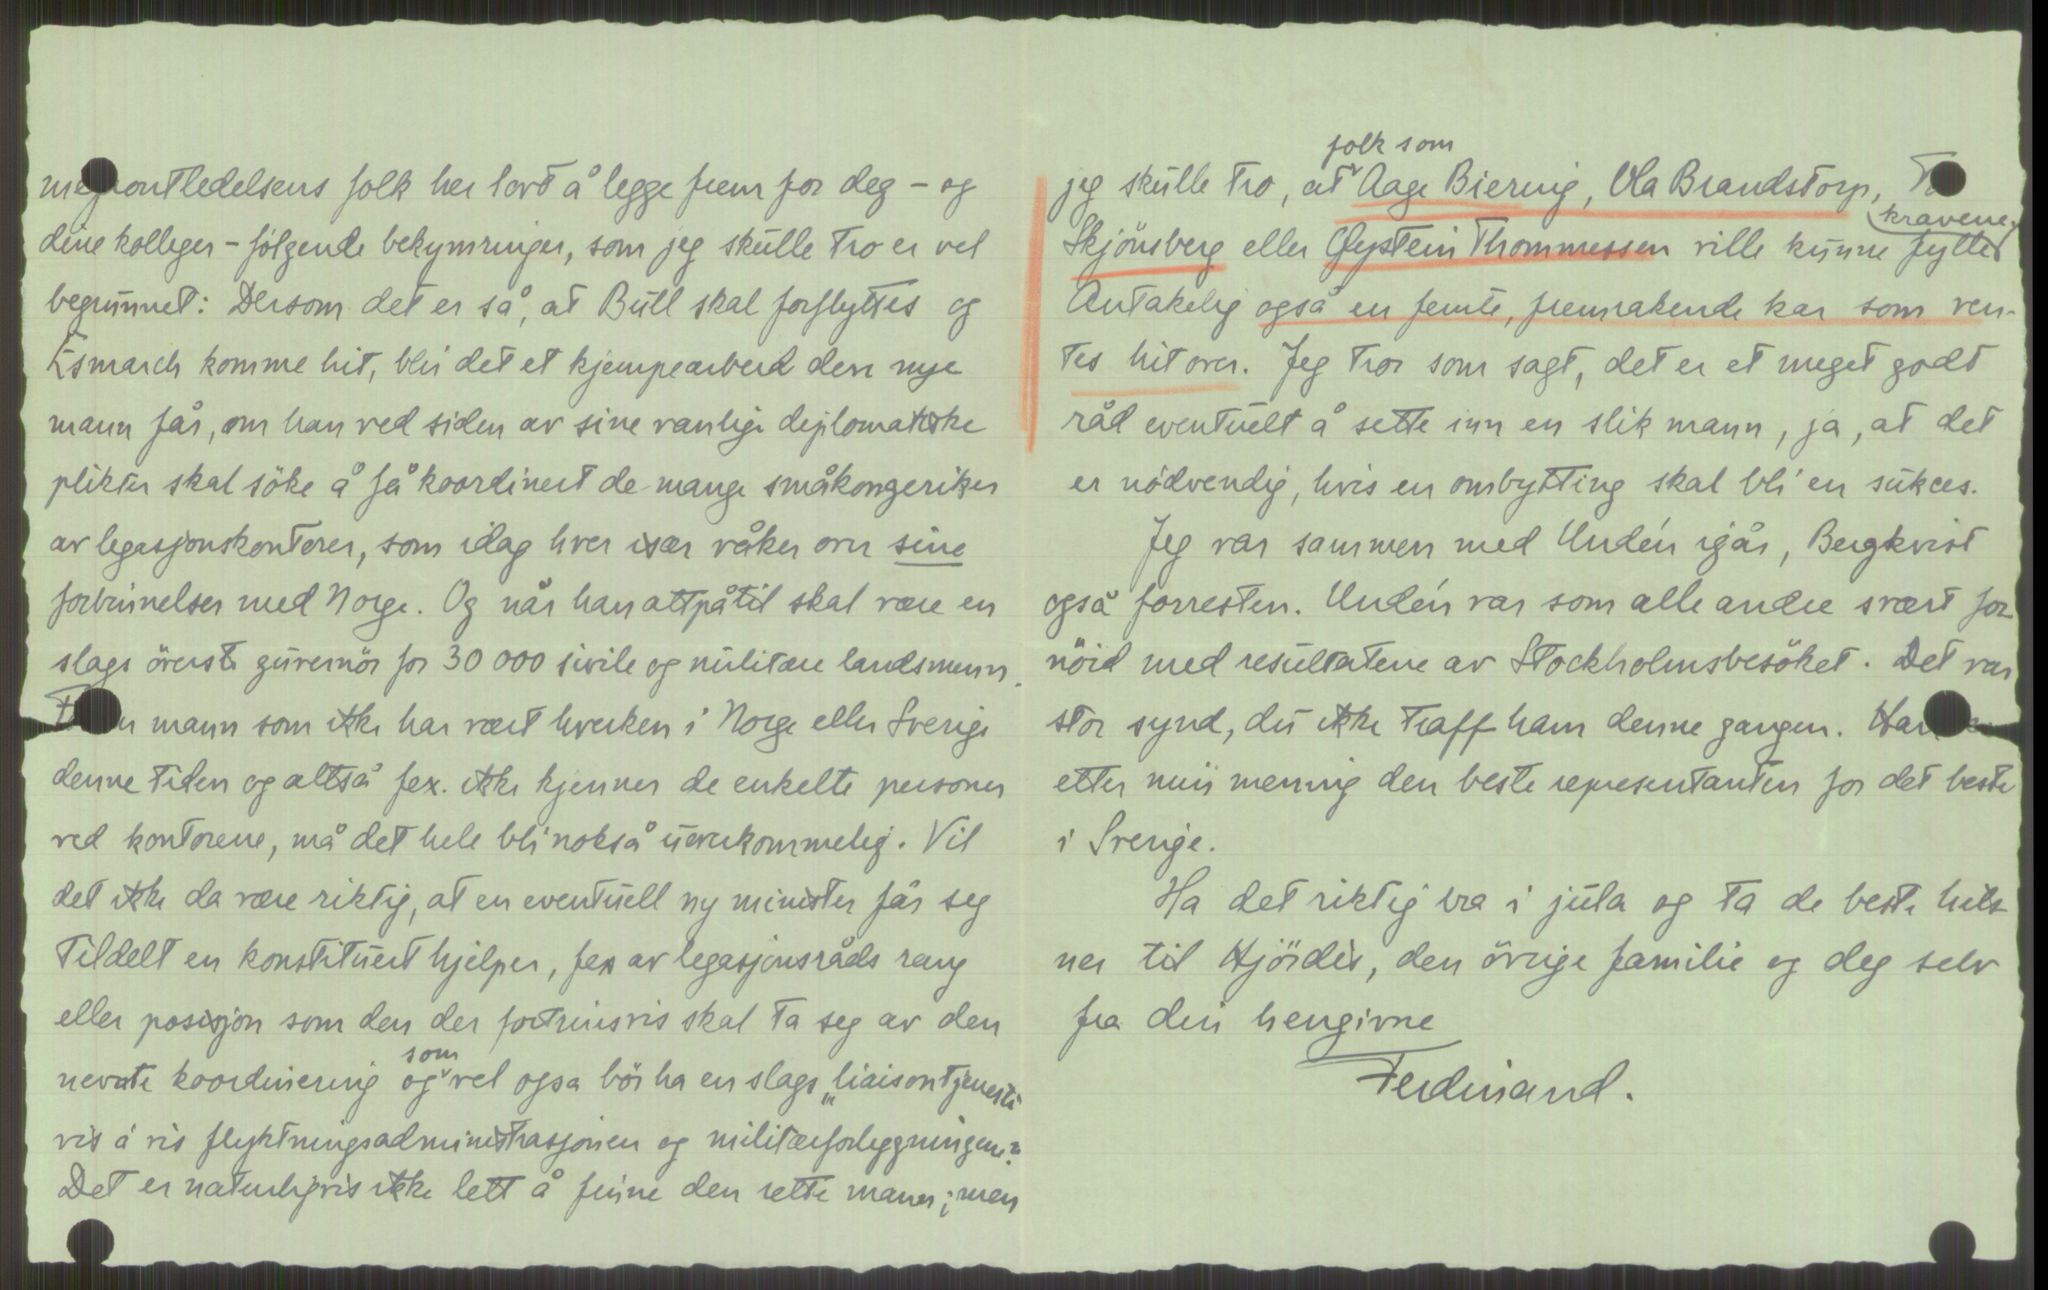 mefrontledelsens folk her lovt å legge frem for deg – og
dine kolleger – følgende bekymringer, som jeg skulle tro er vel
begrunnet: Dersom det er så, at Bull skal forflyttes og
Esmarch komme hit, bli det et kjempearbeid den nye
mann får, om han ved siden av sine vanlige diplomatiske
plikter skal söke å få koordinert de mange småkongeriker
av legasjonskontorer, som idag hver især våker over sine
forbinnelser med Norge. Og når han attpåtil skal være en
slags överste guvernör for 30 000 sivile og militære landsmenn.
mann som ikke har vært hverken i Norge eller Sverige
denne tiden og altså fex. ikke kjenner de enkelte personer
ved kontorene, må det hele bli nokså uoverkommelig. Vil
det ikke da være riktig, at en eventuell ny minister får seg
tildelt en konstituert hjelper, fex av legasjonsråds rang
eller posisjon som den der fortrinsvis skal ta seg av den
nevnte koordinering og som vel også bör ha en slags „liaisontjeneste
vis á vis flyktningsadministrasjonen og militærforleggningene"?
Det er naturligvis ikke lett å finne den rette mann; men
jeg skulle tro, at folk som Aage Biering, Ola Brandstorp,
Skjönsberg eller Øystein Thommessen ville kunne fylle kravene.
Antakelig også en femte, fremrakende kar som ven-
tes hitover. Jeg tror som sagt, det er et meget godt
råd eventuelt å sette inn en slik mann, ja, at det
er nödvendig, hvis en ombytting skal bli en sukces.
Jeg var sammen med Undén igår, Bergkvist
også forresten. Undén var som alle andre svært for-
nöid med resultatene av Stockholmsbesöket. Det var
stor synd, du ikke traff ham denne gangen. Han er
etter min mening den beste representanten for det beste
i Sverige.
Ha det riktig bra i jula og ta de beste hils-
ner til Hjördis, den övrige familie og deg selv
fra din hengivne
Ferdinand.